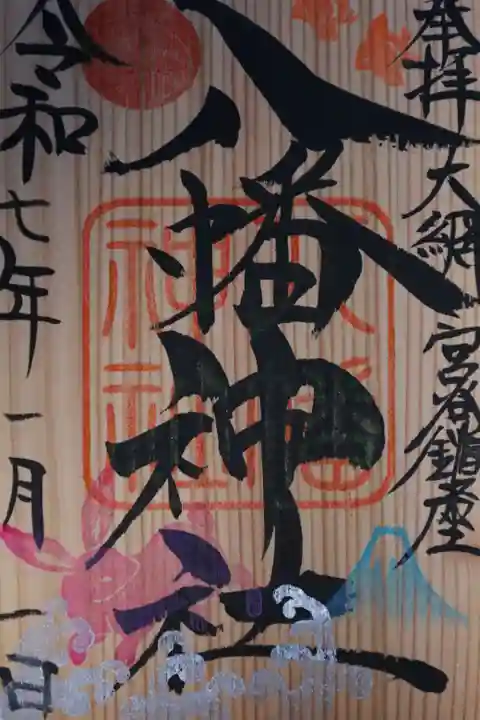 奉拝 大網 宮谷鎮座
八幡神社
令和七年 一月 一日
八幡
神社